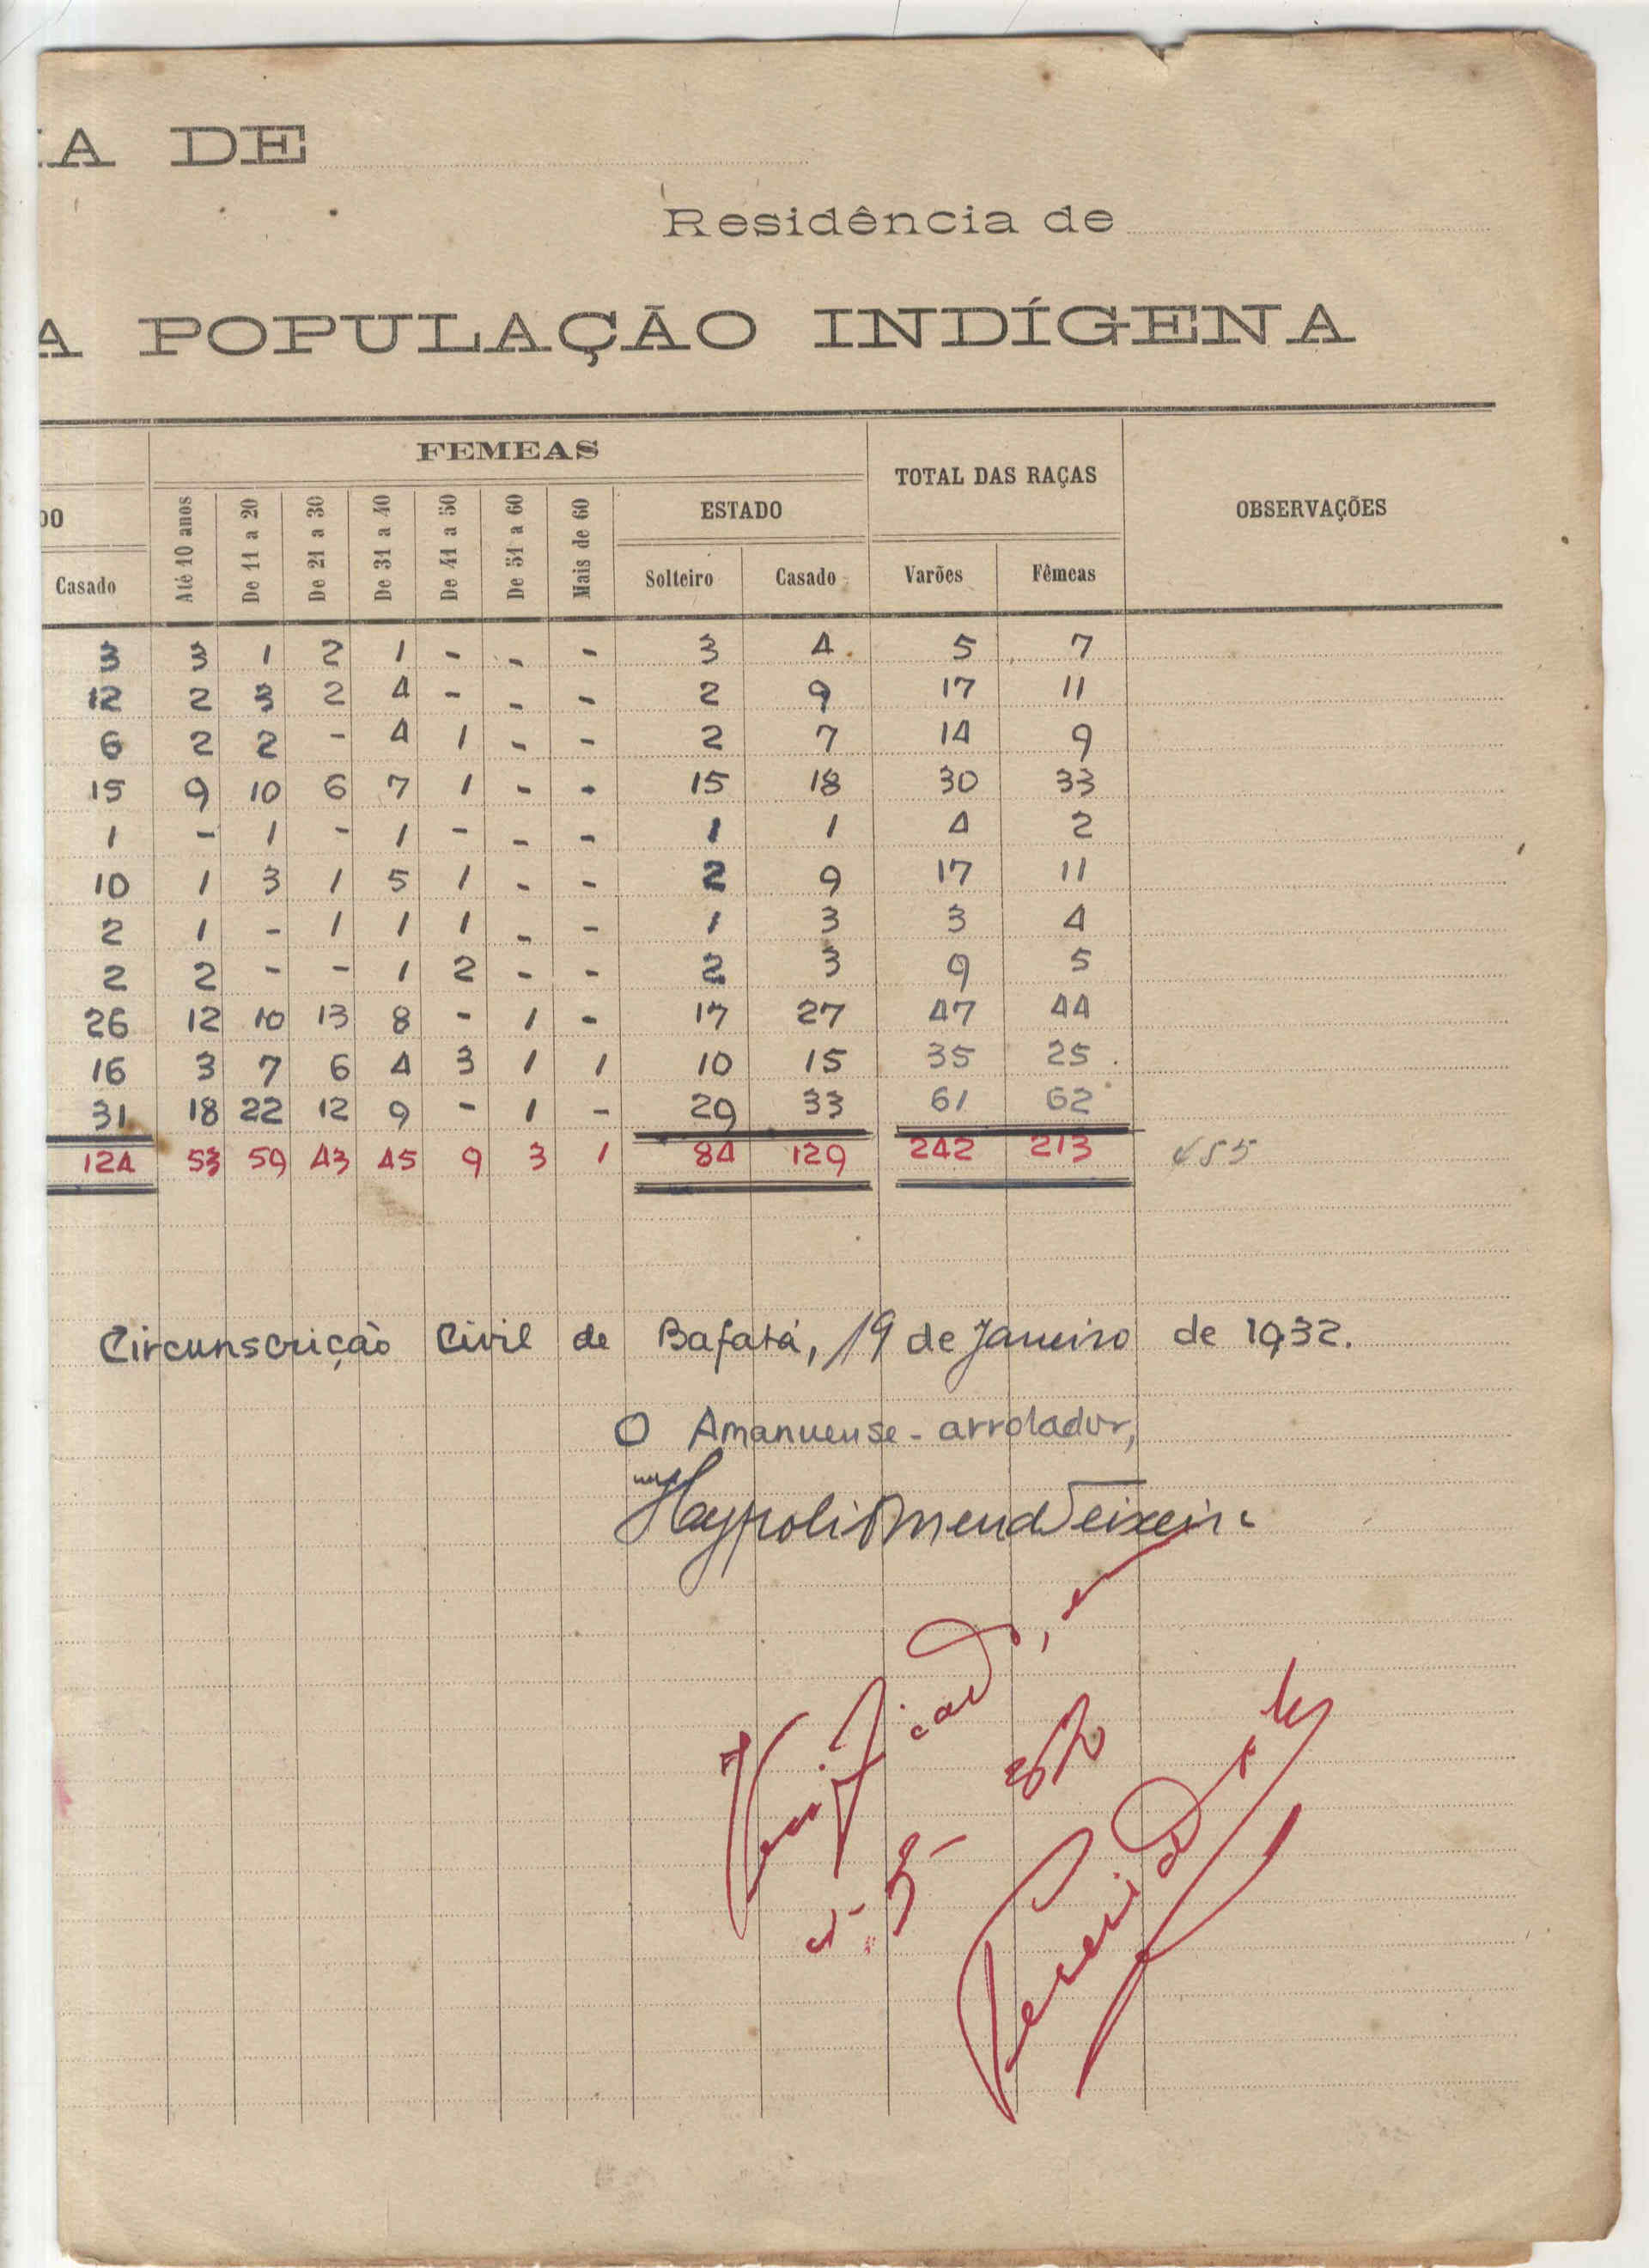 A DE
Residência de
A POPULAÇÃO INDÍGENA
FEMEAS
TOTAL DAS RAÇAS
OBSERVAÇÕES
DO
ESTADO
Casado Até 10 anos De 11 a 20 De 21 a 30 De 31 a 40 De 41 a 50 De 51 a 60 Mais de 60 Solteiro Casado Varões Fêmeas
3 3 1 2 1 - - - 3 4 5 7
12 2 3 2 4 - - - 2 9 17 11
6 2 2 - 4 1 - - 2 7 14 9
15 9 10 6 7 1 - - 15 18 30 33
1 - 1 - 1 - - - 1 1 4 2
10 1 3 1 5 1 - - 2 9 17 11
2 1 - 1 1 1 - - 1 3 3 4
2 2 - - 1 2 - - 2 3 9 5
26 12 10 13 8 - 1 - 17 27 47 44
16 3 7 6 4 3 1 1 10 15 35 25
31 18 22 12 9 - 1 - 29 33 61 62
124 53 59 43 45 9 3 1 84 129 242 213 455
Circunscrição Civil de Bafatá, 19 de Janeiro de 1932.
O Amanuense-arrolador,
Verificado, em